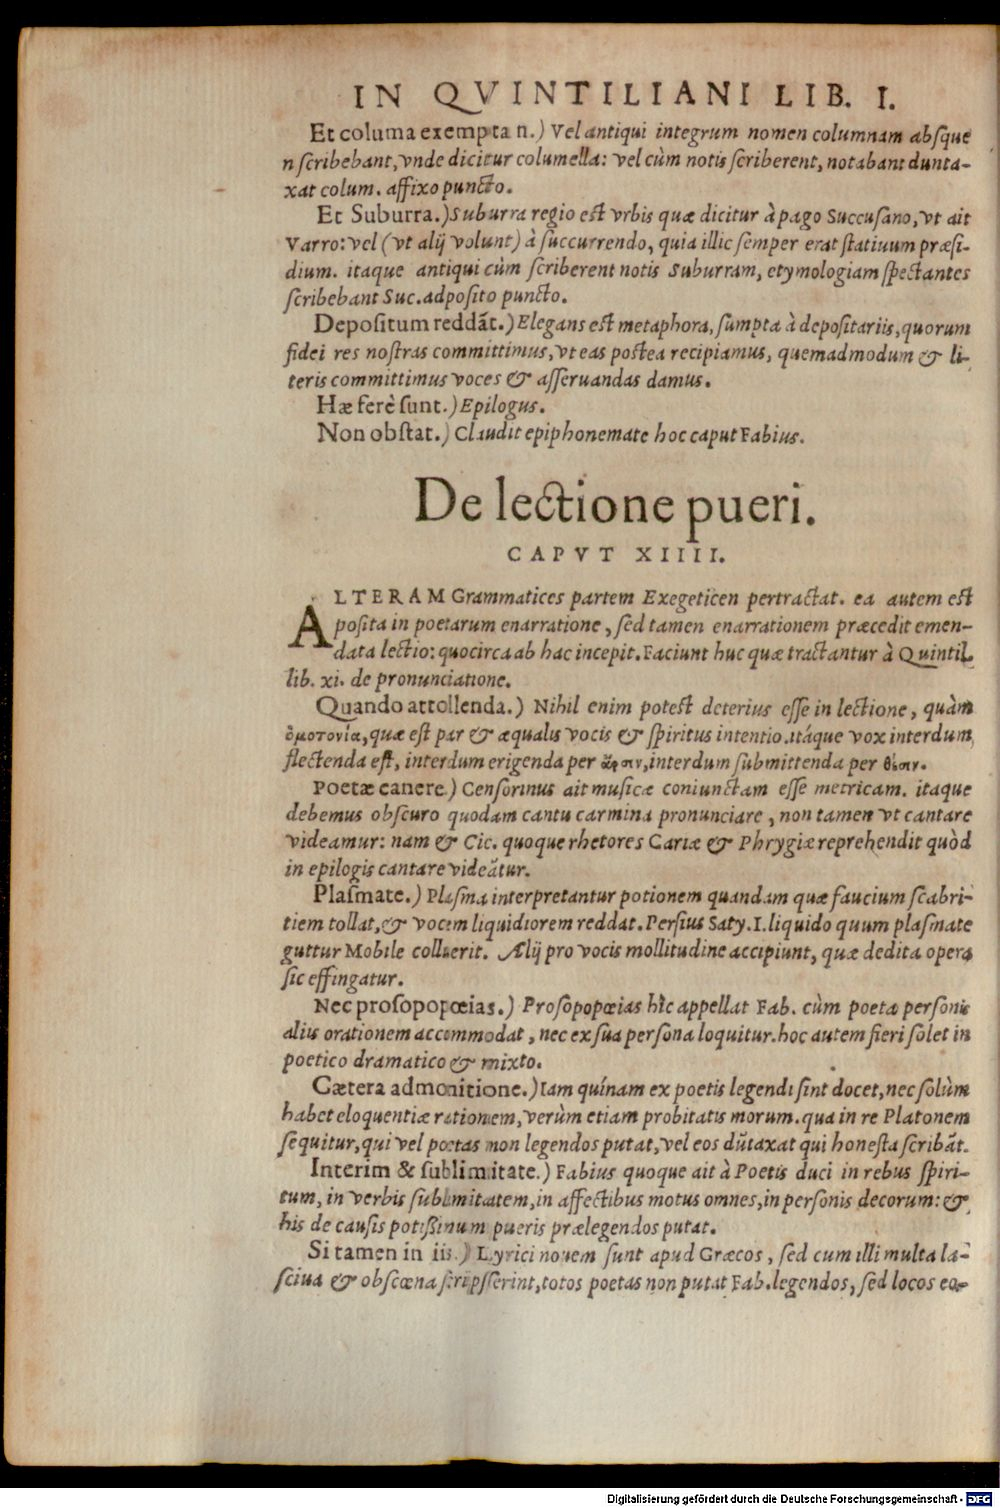 IN QVINTILIANI LIB. I.
Et columa exempta n.) Vel antiqui integrum nomen columnam absque
n scribebant, vnde dicitur columella: vel cùm notis scriberent, notabant dunta-
xat colum. affixo puncto.
Et Suburra.) Suburra regio est vrbis quæ dicitur à pago Succusano, vt ait
Varro: vel (vt alij volunt) à succurrendo, quia illic semper erat statiuum præsi-
dium. itaque antiqui cùm scriberent notis Suburram, etymologiam spectantes
scribebant Suc. adposito puncto.
Depositum reddãt.) Elegans est metaphora, sumpta à depositariis, quorum
fidei res nostras committimus, vt eas postea recipiamus, quemadmodum & li-
teris committimus voces & asseruandas damus.
Hæ ferè sunt.) Epilogus.
Non obstat.) Claudit epiphonemate hoc caput Fabius.
De lectione pueri.
CAPVT XIIII.
ALTERAM Grammatices partem Exegeticen pertractat. ea autem est
posita in poetarum enarratione, sed tamen enarrationem præcedit emen-
data lectio: quocirca ab hac incepit. Faciunt huc quæ tractantur à Quintil.
lib. xi. de pronunciatione.
Quando attollenda.) Nihil enim potest deterius esse in lectione, quàm
ὁμοτονία, quæ est par & æqualis vocis & spiritus intentio. itáque vox interdum
flectenda est, interdum erigenda per ἄρσιν, interdum submittenda per θέσιν.
Poetæ canere.) Censorinus ait musicæ coniunctam esse metricam. itaque
debemus obscuro quodam cantu carmina pronunciare, non tamen vt cantare
videamur: nam & Cic. quoque rhetores Cariæ & Phrygiæ reprehendit quòd
in epilogis cantare videãtur.
Plasmate.) Plasma interpretantur potionem quandam quæ faucium scabri-
tiem tollat, & vocem liquidiorem reddat. Persius Saty. I. liquido quum plasmate
guttur Mobile colluerit. Alij pro vocis mollitudine accipiunt, quæ dedita opera
sic effingatur.
Nec prosopopœias.) Prosopopœias hîc appellat Fab. cùm poeta personis
aliis orationem accommodat, nec ex sua persona loquitur. hoc autem fieri solet in
poetico dramatico & mixto.
Cætera admonitione.) Iam quínam ex poetis legendi sint docet, nec solùm
habet eloquentiæ rationem, verùm etiam probitatis morum. qua in re Platonem
sequitur, qui vel poetas non legendos putat, vel eos dũtaxat qui honesta scribãt.
Interim & sublimitate.) Fabius quoque ait à Poetis duci in rebus spiri-
tum, in verbis sublimitatem, in affectibus motus omnes, in personis decorum: &
his de causis potißinum pueris prælegendos putat.
Si tamen in iis.) Lyrici nouem sunt apud Græcos, sed cum illi multa la-
sciua & obscœna scripsserint, totos poetas non putat Fab. legendos, sed locos eo-
Digitalisierung gefördert durch die Deutsche Forschungsgemeinschaft - DFG